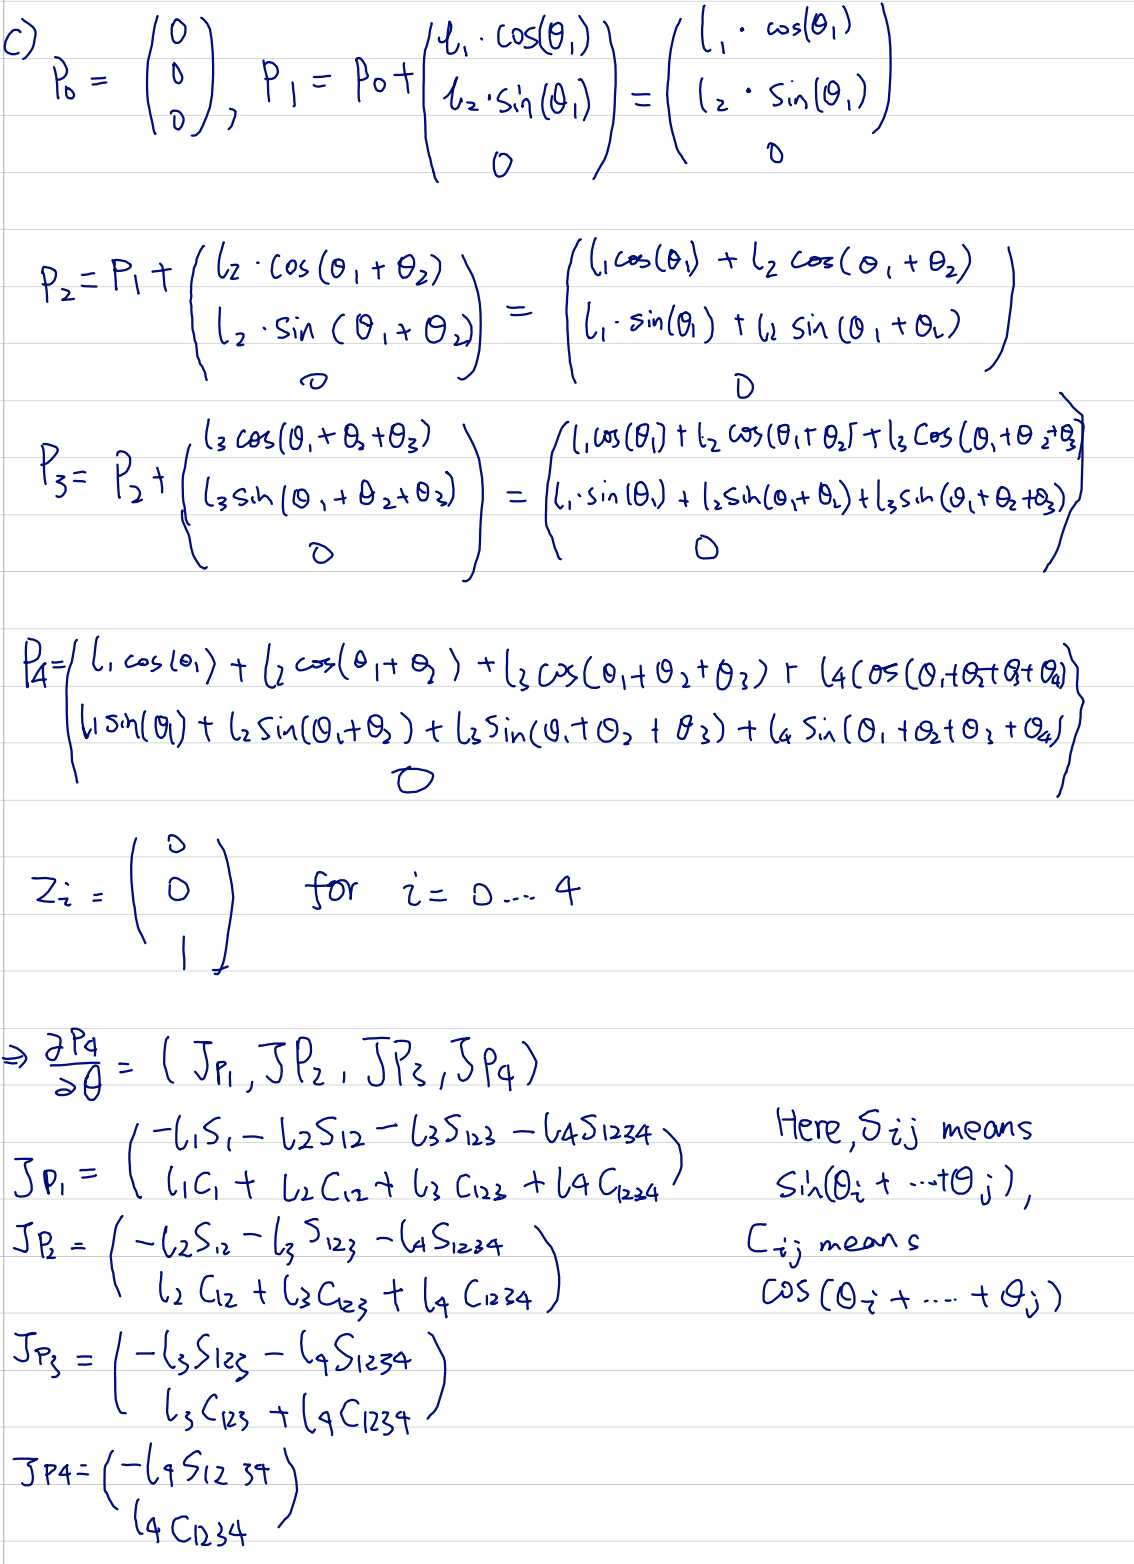 c)
P₀ = (0 0 0), P₁ = P₀ + (l₁ · cos(θ₁) l₂ · sin(θ₁) 0) = (l₁ · cos(θ₁) l₂ · sin(θ₁) 0)
P₂ = P₁ + (l₂ · cos(θ₁ + θ₂) l₂ · sin(θ₁ + θ₂) 0) = (l₁cos(θ₁) + l₂ cos(θ₁ + θ₂) l₁ · sin(θ₁) + l₂ sin(θ₁ + θ₂) 0)
P₃ = P₂ + (l₃ cos(θ₁ + θ₂ + θ₃) l₃ sin(θ₁ + θ₂ + θ₃) 0) = (l₁cos(θ₁) + l₂ cos(θ₁ + θ₂) + l₃ cos(θ₁ + θ₂ + θ₃) l₁ · sin(θ₁) + l₂ sin(θ₁ + θ₂) + l₃ sin(θ₁ + θ₂ + θ₃) 0)
P₄ = (l₁ cos(θ₁) + l₂ cos(θ₁ + θ₂) + l₃ cos(θ₁ + θ₂ + θ₃) + l₄ cos(θ₁ + θ₂ + θ₃ + θ₄)
l₁ sin(θ₁) + l₂ sin(θ₁ + θ₂) + l₃ sin(θ₁ + θ₂ + θ₃) + l₄ sin(θ₁ + θ₂ + θ₃ + θ₄)
0)
Zᵢ = (0 0 1) for i = 0 .... 4
⇒ ∂P₄/∂θ = (J_P₁, J_P₂, J_P₃, J_P₄)
J_P₁ = (-l₁S₁ - l₂S₁₂ - l₃S₁₂₃ - l₄S₁₂₃₄
l₁C₁ + l₂C₁₂ + l₃C₁₂₃ + l₄C₁₂₃₄)
Here, Sij means
sin(θi + .... + θj),
Cij means
cos(θi + .... + θj)
J_P₂ = (-l₂S₁₂ - l₃S₁₂₃ - l₄S₁₂₃₄
l₂C₁₂ + l₃C₁₂₃ + l₄C₁₂₃₄)
J_P₃ = (-l₃S₁₂₃ - l₄S₁₂₃₄
l₃C₁₂₃ + l₄C₁₂₃₄)
J_P₄ = (-l₄S₁₂₃₄
l₄C₁₂₃₄)